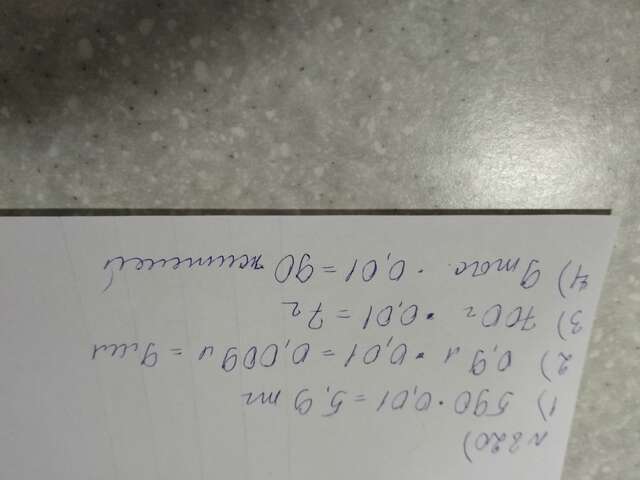 №220)
1) 590 · 0,01 = 5,9 тг
2) 0,9 м · 0,01 = 0,009 м = 9мм
3) 700 г · 0,01 = 7г
4) 9тыс. · 0,01 = 90 жителей